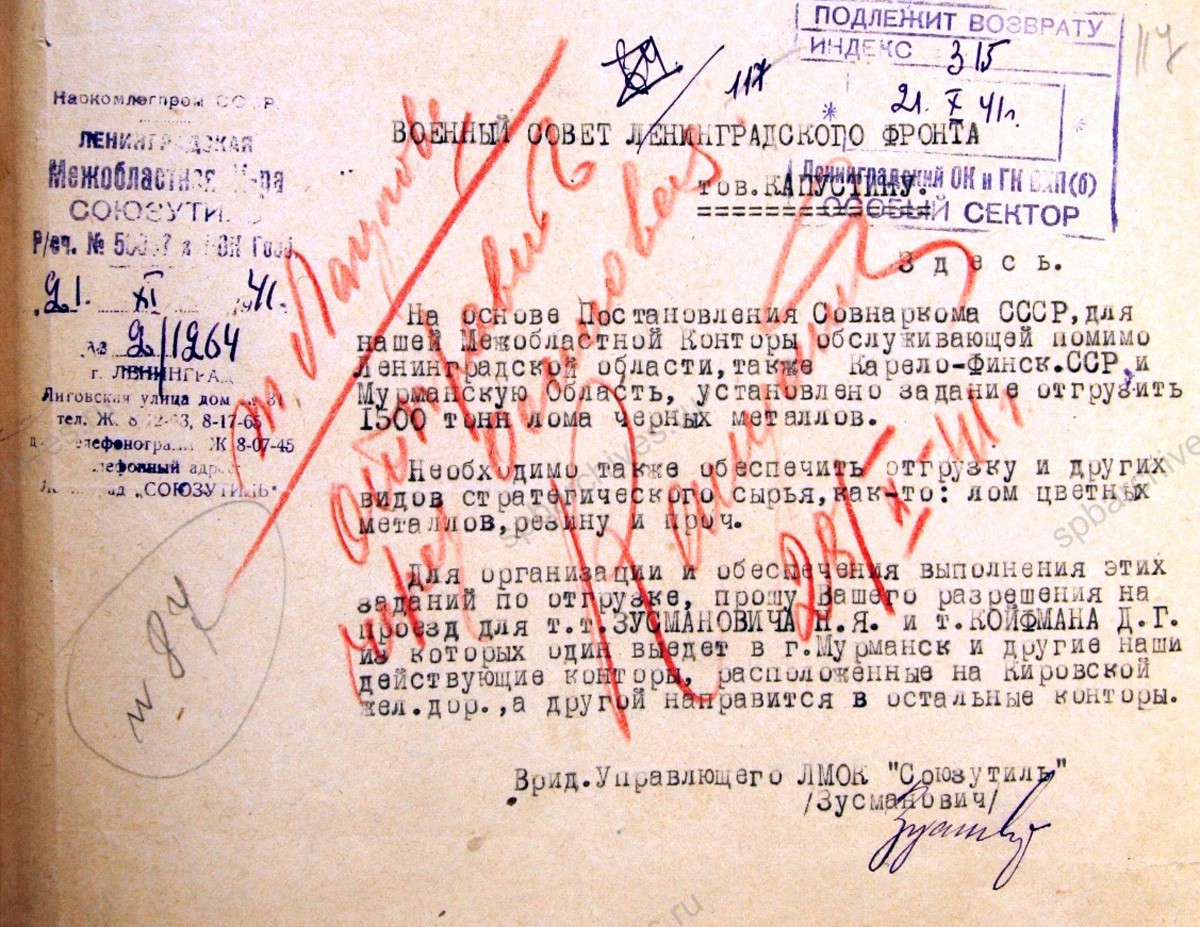 ПОДЛЕЖИТ ВОЗВРАТУ
ИНДЕКС 315
21. X 41г.
Ленинградский ОК и ГК ВКП(б)
ОСОБЫЙ СЕКТОР
117
84
117
Наркомлегпром СССР.
ЛЕНИНГРАДСКАЯ
Межобластная К-ра
СОЮЗУТИЛЬ
Р/сч. №
21. XI 1941г.
№ 2/1264
г. ЛЕНИНГРАД
Лиговская улица дом №
тел. Ж. 8-12-63, 8-17-65
для телефонограмм Ж 8-07-45
Телефонный адрес:
Ленинград „СОЮЗУТИЛЬ"
ВОЕННЫЙ СОВЕТ ЛЕНИНГРАДСКОГО ФРОНТА
тов.КАПУСТИНУ.
===============
З д е с ь.
На основе Постановления Совнаркома СССР,для
нашей Межобластной Конторы обслуживающей помимо
Ленинградской области,также Карело-Финск.ССР,и
Мурманскую Область, установлено задание отгрузить
1500 тонн лома черных металлов.
Необходимо также обеспечить отгрузку и других
видов стратегического сырья,как-то: лом цветных
металлов,резину и проч.
Для организации и обеспечения выполнения этих
заданий по отгрузке, прошу Вашего разрешения на
проезд для т.т.ЗУСМАНОВИЧА Н.Я. и т.КОЙФМАНА Д.Г.
из которых один выедет в г.Мурманск и другие наши
действующие конторы, расположенные на Кировской
жел.дор.,а другой направится в остальные конторы.
Врид.Управлющего ЛМОК "Союзутиль"
/Зусманович/
т. Лагунову
отправить
через
Капустин
XI-41г.
н 87
spbarchives.ru